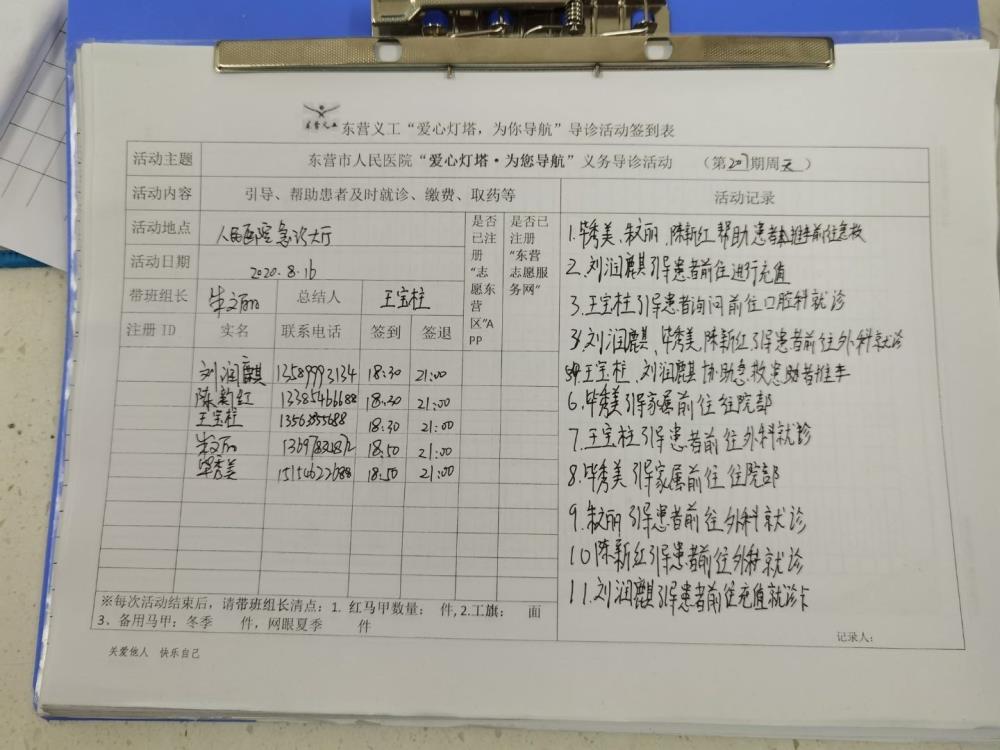 东营义工
东营义工“爱心灯塔，为你导航”导诊活动签到表
活动主题 东营市人民医院“爱心灯塔·为您导航”义务导诊活动 （第207期周天）
活动内容 引导、帮助患者及时就诊、缴费、取药等
活动地点 人民医院急诊大厅
活动日期 2020.8.16
带班组长 朱文丽 总结人 王宝柱
注册 ID 实名 联系电话 签到 签退
是否已注册“志愿东营区”APP
是否已注册“东营志愿服务网”
刘润麒 13589993134 18:30 21:00
陈新红 13385466688 18:30 21:00
王宝柱 13563355688 18:30 21:00
朱文丽 18:50 21:00
毕秀美 15154622688 18:50 21:00
※每次活动结束后，请带班组长清点：1. 红马甲数量： 件,2.工旗： 面
3、备用马甲：冬季 件，网眼夏季 件
关爱他人 快乐自己
活动记录
1.毕秀美、朱文丽、陈新红帮助患者推车前往急救
2.刘润麒引导患者前往进行充值
3.王宝柱引导患者询问前往口腔科就诊
刘润麒、毕秀美、陈新红引导患者前往外科就诊
王宝柱、刘润麒协助急救患者推车
6.毕秀美引导家属前往住院部
7.王宝柱引导患者前往外科就诊
8.毕秀美引导家属前往住院部
9.朱文丽引导患者前往外科就诊
10陈新红引导患者前往外科就诊
11.刘润麒引导患者前往充值就诊卡
记录人：